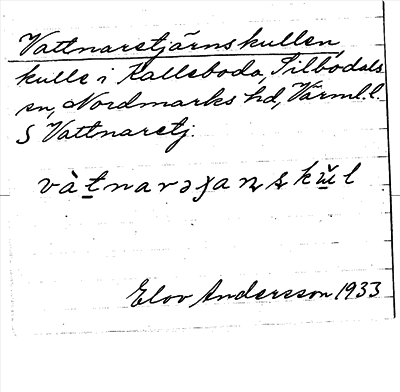 Vattnarstjärnskullen,
kulle i Kalleboda, Silbodals
sn, Nordmarks hd, Värml. l.
S Vattnarstj.
vàt̠narəʝan̥ʂkŭ̠l
Elov Andersson 1933